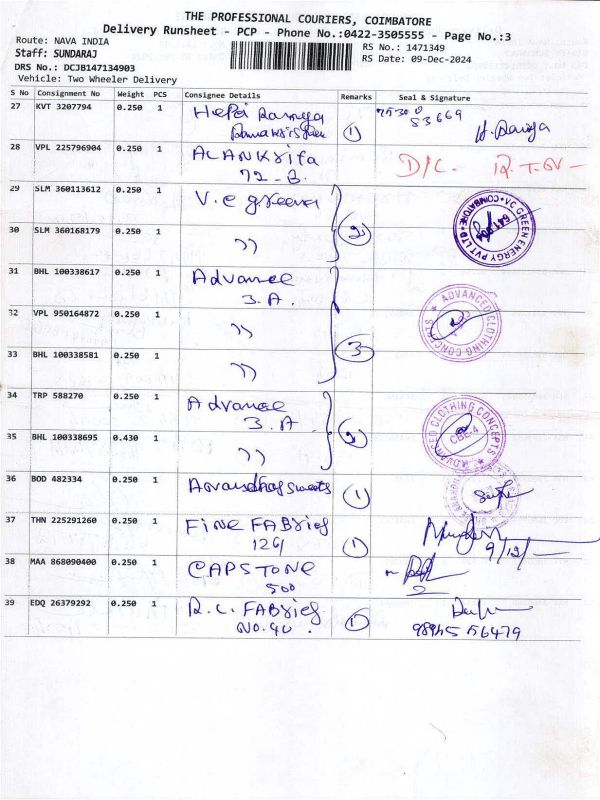 THE PROFESSIONAL COURIERS, COIMBATORE
Delivery Runsheet - PCP - Phone No.:0422-3505555 - Page No.:3
Route: NAVA INDIA
RS No.: 1471349
Staff: SUNDARAJ
RS Date: 09-Dec-2024
DRS No.: DCJB147134903
Vehicle: Two Wheeler Delivery
S No Consignment No Weight PCS Consignee Details Remarks Seal & Signature
27 KVT 3207794 0.250 1 Ramya
1 53669
28 VPL 225796904 0.250 1 ALANKrita D/C.
72-B.
29 SLM 360113612 0.250 1 V.C greena
VC GREEN ENERGY PVT LTD COIMBATORE
30 SLM 360168179 0.250 1 " 2
31 BHL 100338617 0.250 1 Advance
3.A.
ADVANCED CLOTHING CONCEPTS
32 VPL 950164872 0.250 1 "
3
33 BHL 100338581 0.250 1 "
34 TRP 588270 0.250 1 Advance
3.A.
ADVANCED CLOTHING CONCEPTS
CBE-4
35 BHL 100338695 0.430 1 " 2
36 BOD 482334 0.250 1 sweets 1
37 THN 225291260 0.250 1 FINE FABrics
126/ 1 9/12/
38 MAA 868090400 0.250 1 CAPSTONE
500
39 EDQ 26379292 0.250 1 R.C. FABrics 1
NO.40.